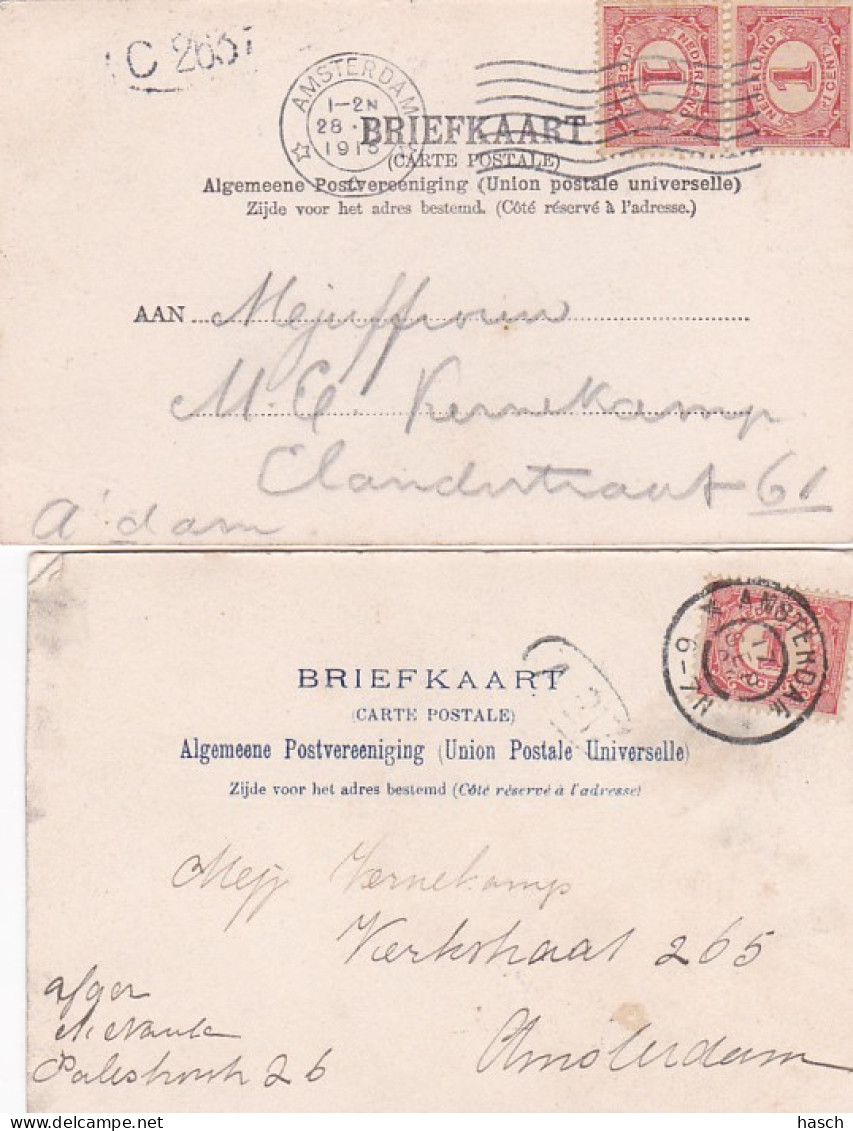 C 2637
AMSTERDAM
1-2N
28
1913
NEDERLAND 1 CENT
NEDERLAND 1 CENT
BRIEFKAART
(CARTE POSTALE)
Algemeene Postvereeniging (Union postale universelle)
Zijde voor het adres bestemd. (Côté réservé à l'adresse.)
AAN Mejuffrouw
M. E. Kernekamp
Elandstraat 61
A'dam
AMSTERDAM
7-9N
BRIEFKAART
(CARTE POSTALE)
Algemeene Postvereeniging (Union Postale Universelle)
Zijde voor het adres bestemd (Côté réservé à l'adresse)
Mejj Kernekamp
Kerkstraat 265
Amsterdam
afger
26
hasch